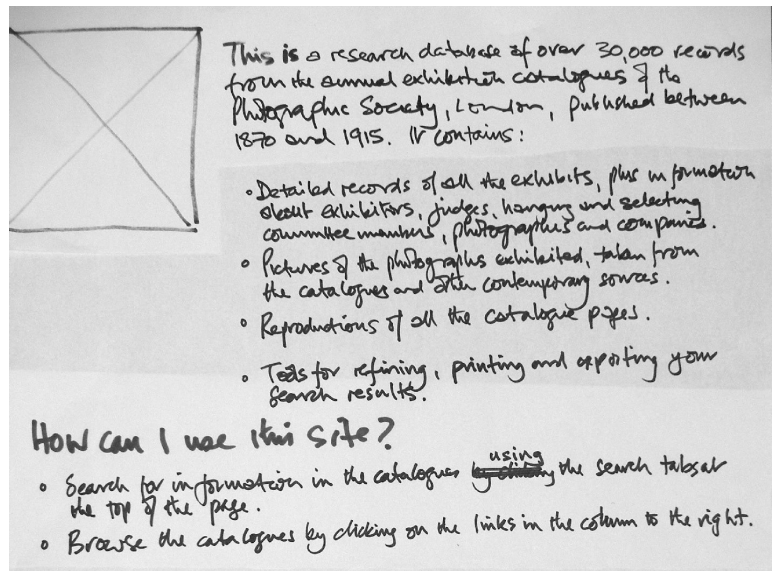 This is a research database of over 30,000 records
from the annual exhibition catalogues of the
Photographic Society, London, published between
1870 and 1915. It contains:
• Detailed records of all the exhibits, plus information
about exhibitors, judges, hanging and selecting
committee members, photographers and companies.
• Pictures of the photographs exhibited, taken from
the catalogues and other contemporary sources.
• Reproductions of all the catalogue pages.
• Tools for refining, printing and exporting your
search results.
How can I use this site?
• Search for information in the catalogues using the search tabs at
the top of the page.
• Browse the catalogues by clicking on the links in the column to the right.